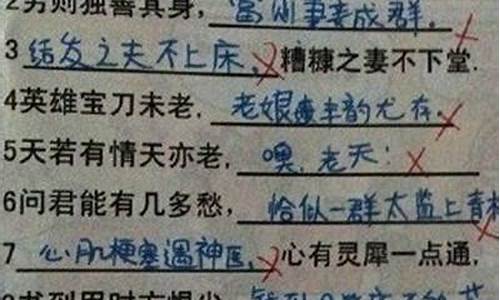 2穷则独善其身，富则妻妾成群．
3结发之夫不上床，糟糠之妻不下堂．
4英雄宝刀未老，老娘丰韵尤存．
5天若有情天亦老，噢，老天！
6问君能有几多愁，恰似一群太监上青
7心肌梗塞遇神医，心有灵犀一点通，